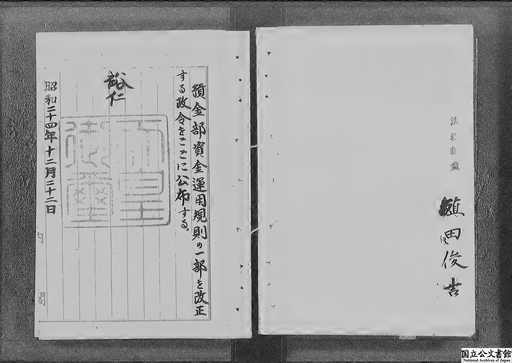 法務総裁
殖田俊吉
預金部資金運用規則の一部を改正
する政令をここに公布する。
裕仁
天皇
御璽
昭和二十四年十二月二十二日
内閣
国立公文書館
National Archives of Japan